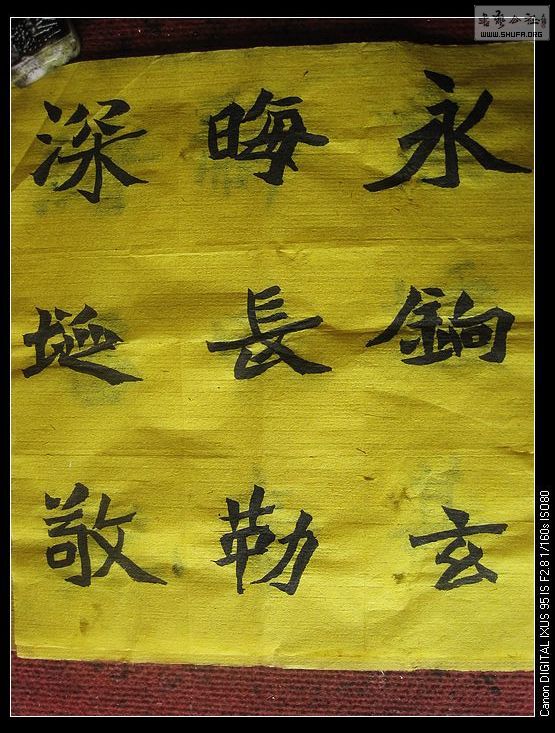 永銄玄
晦長勒
深埏敬
WWW.SHUFA.ORG
Canon DIGITAL IXUS 95IS F2.8 1/160s ISO80